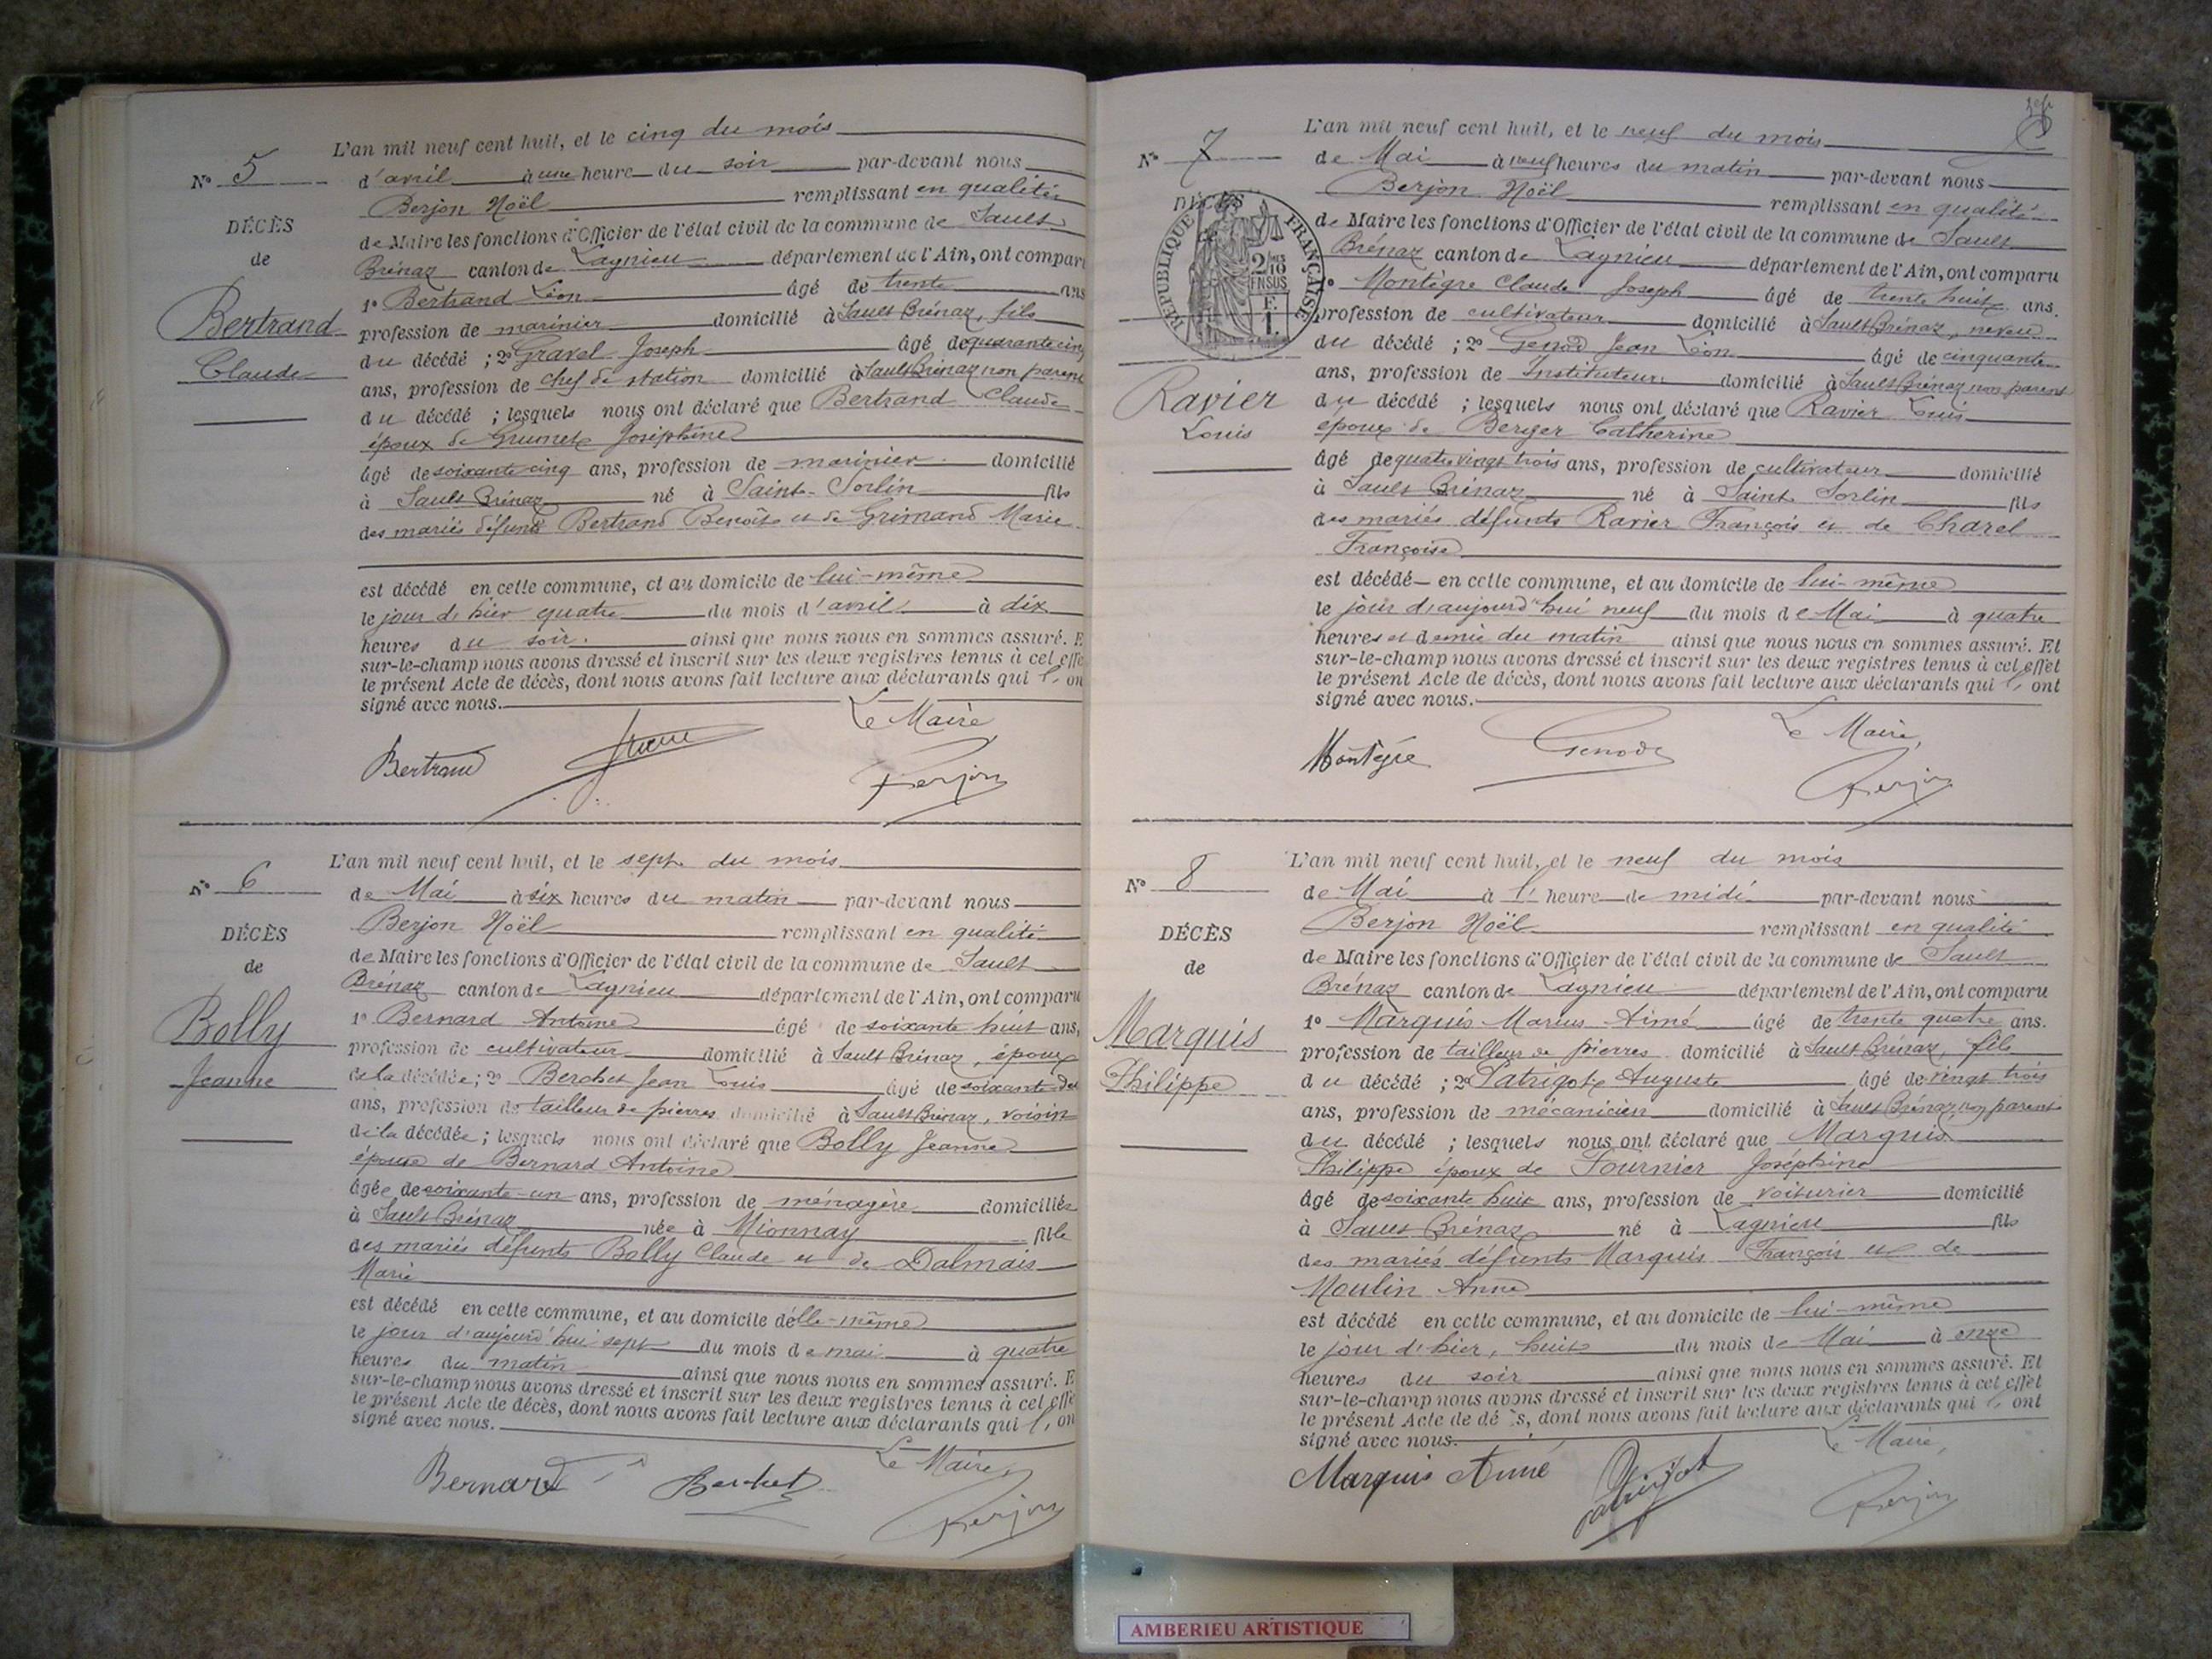 N° 5
DÉCÈS
de
Bertrand
Claude
L'an mil neuf cent huit, et le cinq du mois
d'avril à une heure du soir par-devant nous
Berjon Noël remplissant en qualité
de Maire les fonctions d'Officier de l'état civil de la commune de Sault
Brénaz canton de Lagnieu département de l'Ain, ont compar
1° Bertrand Léon âgé de trente ans
profession de marinier domicilié à Sault Brénaz, fils
du décédé ; 2° Gravel Joseph âgé de quarante cinq
ans, profession de chef de station domicilié à Sault Brénaz non parent
du décédé ; lesquels nous ont déclaré que Bertrand Claude
époux de Joséphine
âgé de soixante cinq ans, profession de marinier domicilié
à Sault Brénaz né à Saint-Sorlin fils
des mariés défunts Bertrand Benoît et de Grimand Marie
est décédé en cette commune, et au domicile de lui-même
le jour d'hier quatre du mois d'avril à dix
heures du soir. ainsi que nous nous en sommes assuré. E
sur-le-champ nous avons dressé et inscrit sur les deux registres tenus à cet effe
le présent Acte de décès, dont nous avons fait lecture aux déclarants qui l' on
signé avec nous.
Le Maire
Bertrand Berjon
N° 6
DÉCÈS
de
Bolly
Jeanne
L'an mil neuf cent huit, et le sept du mois
de Mai à six heures du matin par-devant nous
Berjon Noël remplissant en qualité
de Maire les fonctions d'Officier de l'état civil de la commune de Sault
Brénaz canton de Lagnieu département de l'Ain, ont comparu
1° Bernard Antoine âgé de soixante huit ans,
profession de cultivateur domicilié à Sault Brénaz, époux
de la décédée ; 2° Berchet Jean Louis âgé de soixante
ans, profession de tailleur de pierres domicilié à Sault Brénaz, voisin
de la décédée ; lesquels nous ont déclaré que Bolly Jeanne
épouse de Bernard Antoine
âgée de soixante-un ans, profession de ménagère domiciliée
à Sault Brénaz née à Mionnay fille
des mariés défunts Bolly Claude et de Dalmais
Marie
est décédé en cette commune, et au domicile d'elle-même
le jour d'aujourd'hui sept du mois de mai à quatre
heures du matin ainsi que nous nous en sommes assuré. E
sur-le-champ nous avons dressé et inscrit sur les deux registres tenus à cet effe
le présent Acte de décès, dont nous avons fait lecture aux déclarants qui l' on
signé avec nous.
Le Maire,
Bernard Berchet Berjon
N° 7
DÉCÈS
RÉPUBLIQUE FRANÇAISE
2/10 EN SUS
Ravier
Louis
L'an mil neuf cent huit, et le neuf du mois
de Mai à neuf heures du matin par-devant nous
Berjon Noël remplissant en qualité
de Maire les fonctions d'Officier de l'état civil de la commune de Sault
Brénaz canton de Lagnieu département de l'Ain, ont comparu
1° Montègre Claude Joseph âgé de trente huit ans.
profession de cultivateur domicilié à Sault Brénaz, neveu
du décédé ; 2° Genod Jean Léon âgé de cinquante
ans, profession de Instituteur domicilié à Sault Brénaz non parent
du décédé ; lesquels nous ont déclaré que Ravier Louis
époux de Berger Catherine
âgé de quatre vingt trois ans, profession de cultivateur domicilié
à Sault Brénaz né à Saint Sorlin fils
des mariés défunts Ravier François et de Charel
Françoise
est décédé en cette commune, et au domicile de lui-même
le jour d'aujourd'hui neuf du mois de Mai à quatre
heures et demie du matin ainsi que nous nous en sommes assuré. Et
sur-le-champ nous avons dressé et inscrit sur les deux registres tenus à cet effet
le présent Acte de décès, dont nous avons fait lecture aux déclarants qui l' ont
signé avec nous.
Le Maire,
Montègre Genod Berjon
N° 8
DÉCÈS
de
Marquis
Philippe
L'an mil neuf cent huit, et le neuf du mois
de Mai à l' heure de midi par-devant nous
Berjon Noël remplissant en qualité
de Maire les fonctions d'Officier de l'état civil de la commune de Sault
Brénaz canton de Lagnieu département de l'Ain, ont comparu
1° Marquis Marius Aimé âgé de trente quatre ans.
profession de tailleur de pierres domicilié à Sault Brénaz, fils
du décédé ; 2° Patrigot Auguste âgé de vingt trois
ans, profession de mécanicien domicilié à Sault Brénaz, non parent
du décédé ; lesquels nous ont déclaré que Marquis
Philippe époux de Fournier Joséphine
âgé de soixante huit ans, profession de voiturier domicilié
à Sault Brénaz né à Lagnieu fils
des mariés défunts Marquis François et de
Moulin Anne
est décédé en cette commune, et au domicile de lui-même
le jour d'hier, huit du mois de Mai à onze
heures du soir ainsi que nous nous en sommes assuré. Et
sur-le-champ nous avons dressé et inscrit sur les deux registres tenus à cet effet
le présent Acte de dé s, dont nous avons fait lecture aux déclarants qui l' ont
signé avec nous.
Le Maire,
Marquis Aimé Patrigot Berjon
AMBERIEU ARTISTIQUE